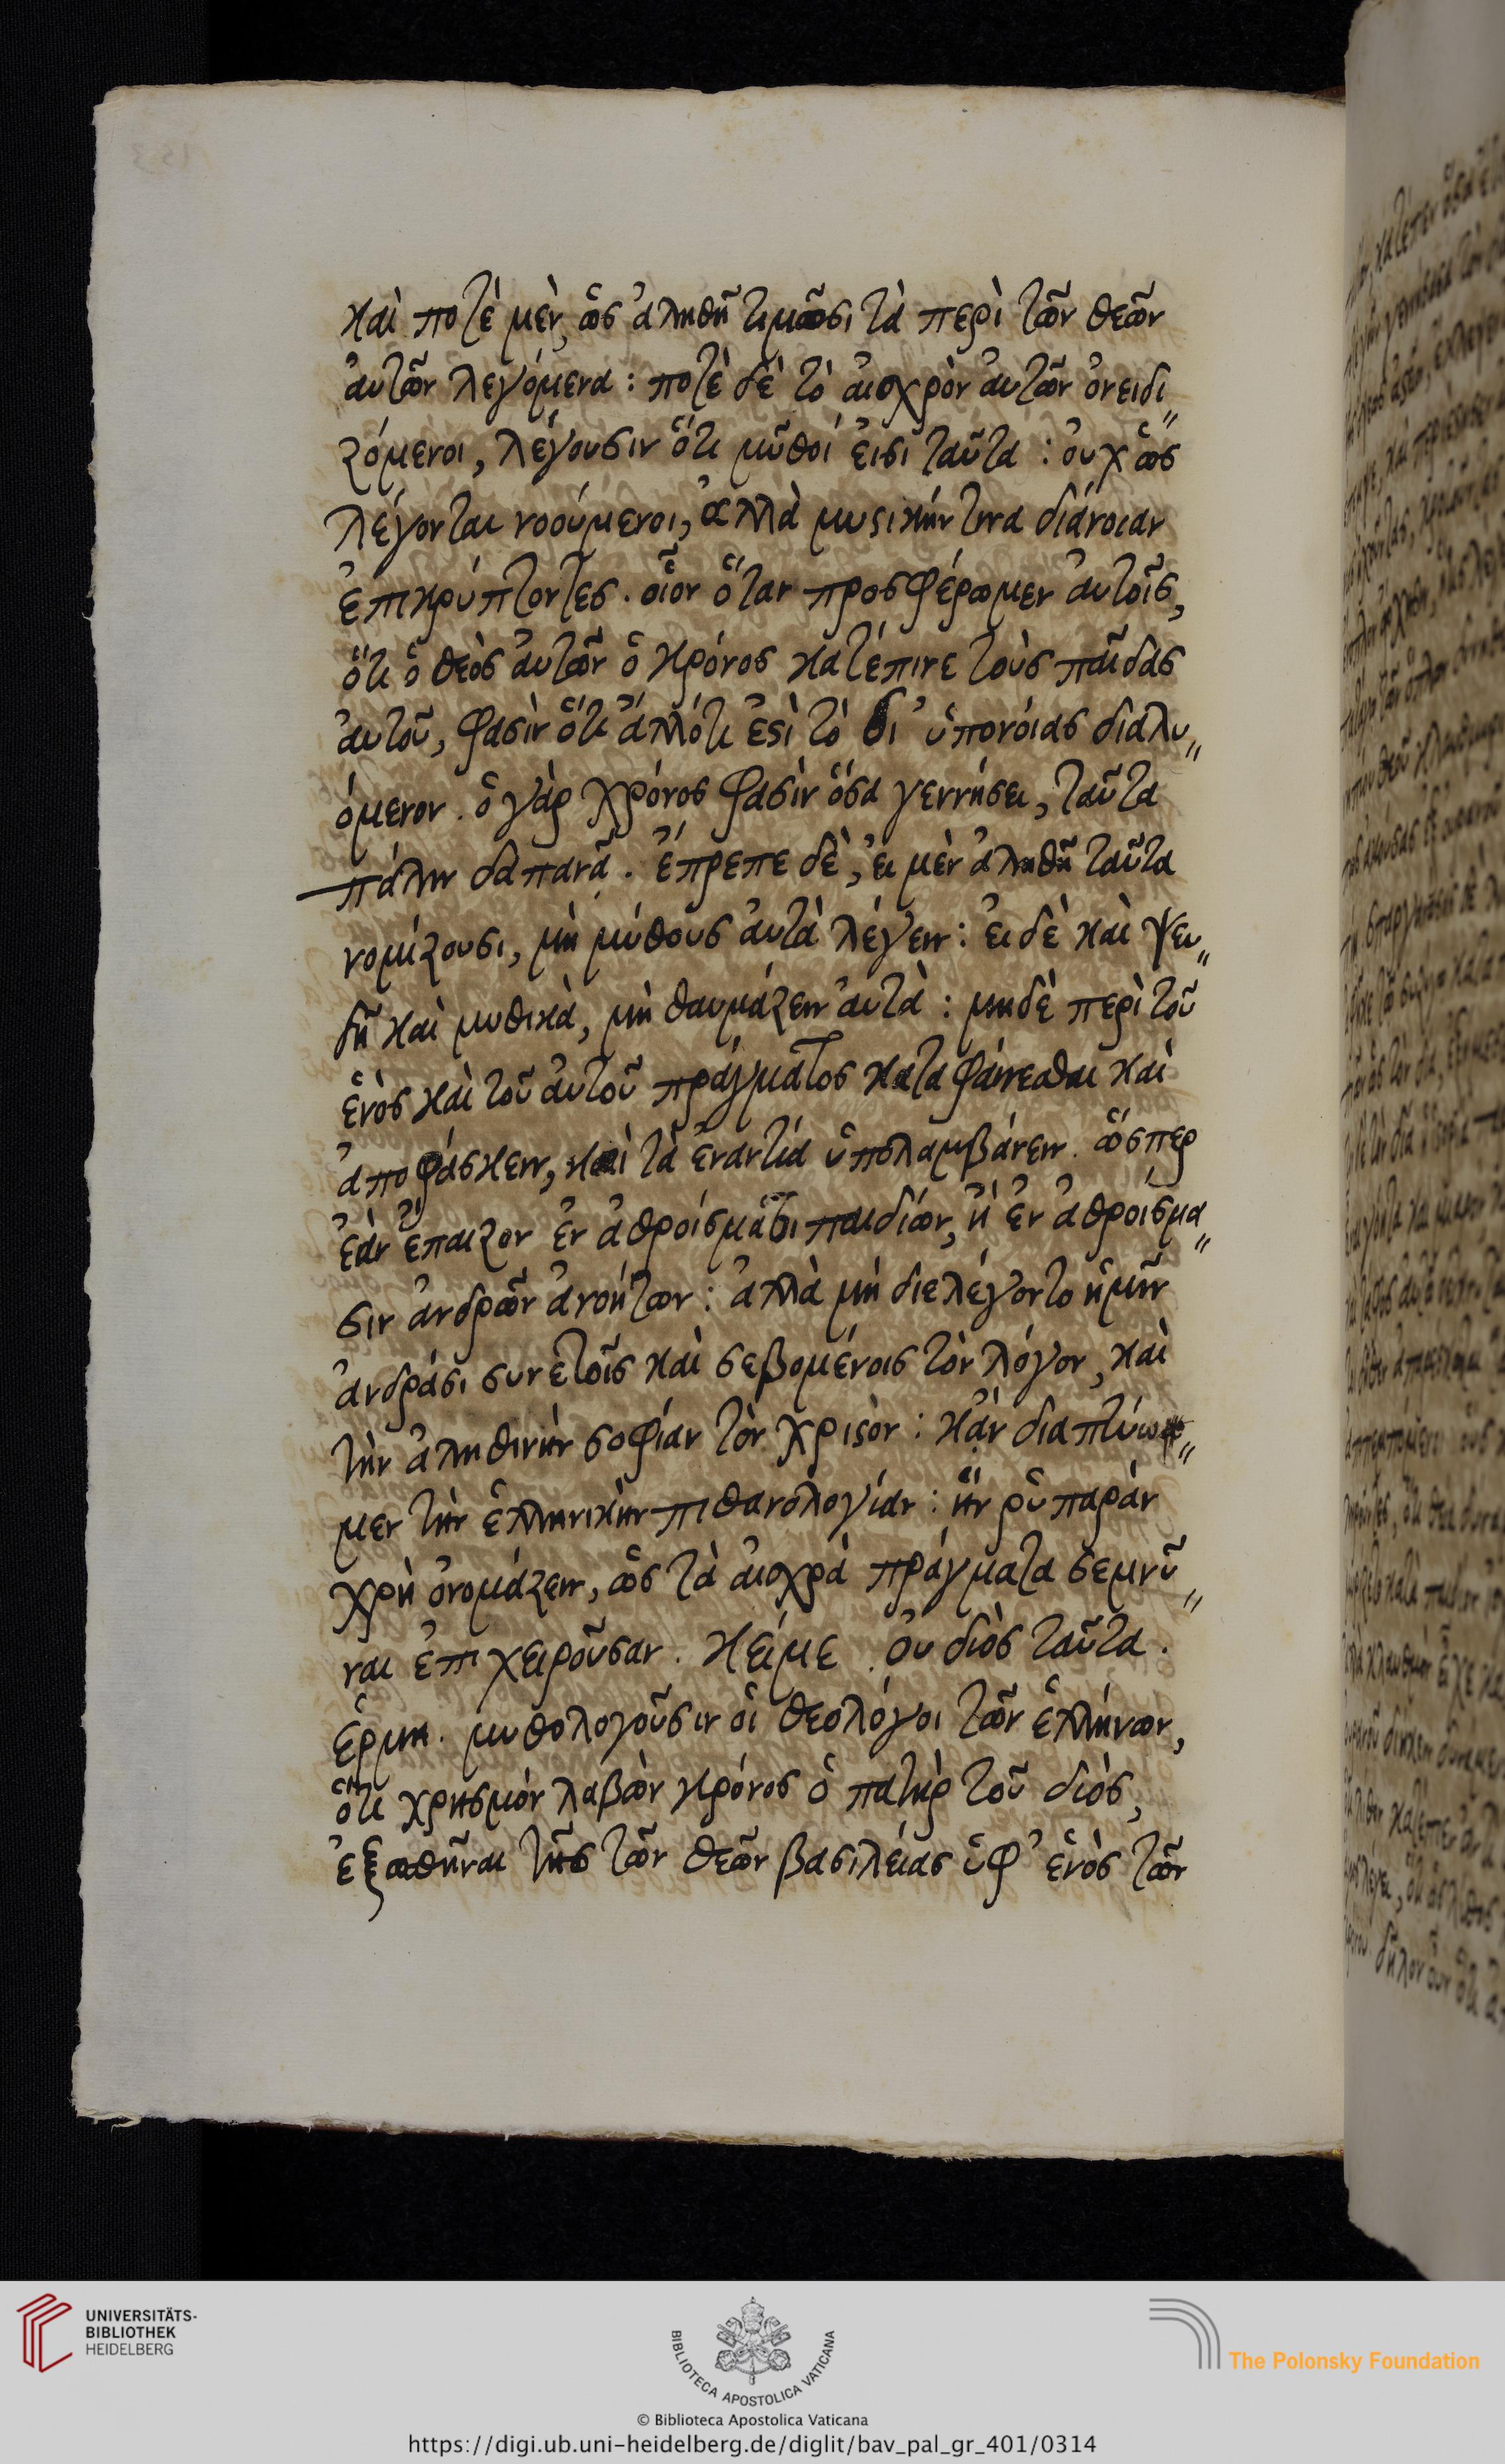 καὶ ποτὲ μὲν, ὡς ἀληθῆ τιμῶσι τὰ περὶ τῶν θεῶν
ἀυτῶν λεγόμενα : ποτὲ δὲ τὸ ἀισχρὸν ἀυτῶν ὀνειδι〃
ζόμενοι, λέγουσιν ὅτι μῦθοί ἐισι ταῦτα : ὀυχ ὡς
λέγονται νοούμενοι, ἀλλὰ μυϛικήν τινα διάνοιαν
ἐπικρύπτοντες . οἷον ὅταν προσφέρωμεν ἀυτοῖς,
ὅτι ὁ θεὸς ἀυτῶν ὁ κρόνος κατέπινε τοὺς παῖδας
ἀυτοῦ, φασὶν ὅτι ἀλλότι ἐϛὶ τὸ δι᾽ ὑπονόιας διαλυ〃
όμενον . ὁ γὰρ χρόνος φασὶν ὅσα γεννήσει, ταῦτα
πάλιν δαπανᾶ . ἔπρεπε δὲ, ἐι μὲν ἀληθῆ ταῦτα
νομίζουσι, μὴ μύθους ἀυτὰ λέγειν : ἐι δὲ καὶ ψευ〃
δῆ καὶ μυθικὰ, μὴ θαυμάζειν ἀυτὰ : μηδὲ περὶ τοῦ
ἑνὸς καὶ τοῦ ἀυτοῦ πράγματος καταφάινεσθαι καὶ
ἀποφάσκειν, καὶ τὰ ἐναντία ὑπολαμβάνειν . ὥσπερ
ἐὰν ἔπαιζον ἐν ἀθροίσματι παιδίων, ἢ ἐν ἀθροίσμα〃
σιν ἀνδρῶν ἀνοήτων : ἀλλὰ μὴ διελέγοντο ἡμῖν
ἀνδράσι συνετοῖς καὶ σεβομένοις τὸν λόγον, καὶ
τὴν ἀληθινὴν σοφίαν τὸν χριϛὸν : κἂν διαπτύω〃
μεν τὴν ἑλληνικὴν πιθανολογίαν : ἣν ῥυπαρὰν
χρὴ ὀνομάζειν, ὡς τὰ ἀισχρὰ πράγματα σεμνῦ〃
ναι ἐπιχειροῦσαν . κείμε . ὀυ διὸς ταῦτα .
ἑρμη . μυθολογοῦσιν ὁι θεολόγοι τῶν ἑλλήνων,
ὅτι χρησμὸν λαβὼν κρόνος ὁ πατὴρ τοῦ διὸς,
ἐξωθῆναι τῆς τῶν θεῶν βασιλείας ὑφ᾽ ἑνὸς τῶν
UNIVERSITÄTS-
BIBLIOTHEK
HEIDELBERG
BIBLIOTECA APOSTOLICA VATICANA
The Polonsky Foundation
© Biblioteca Apostolica Vaticana
https://digi.ub.uni-heidelberg.de/diglit/bav_pal_gr_401/0314